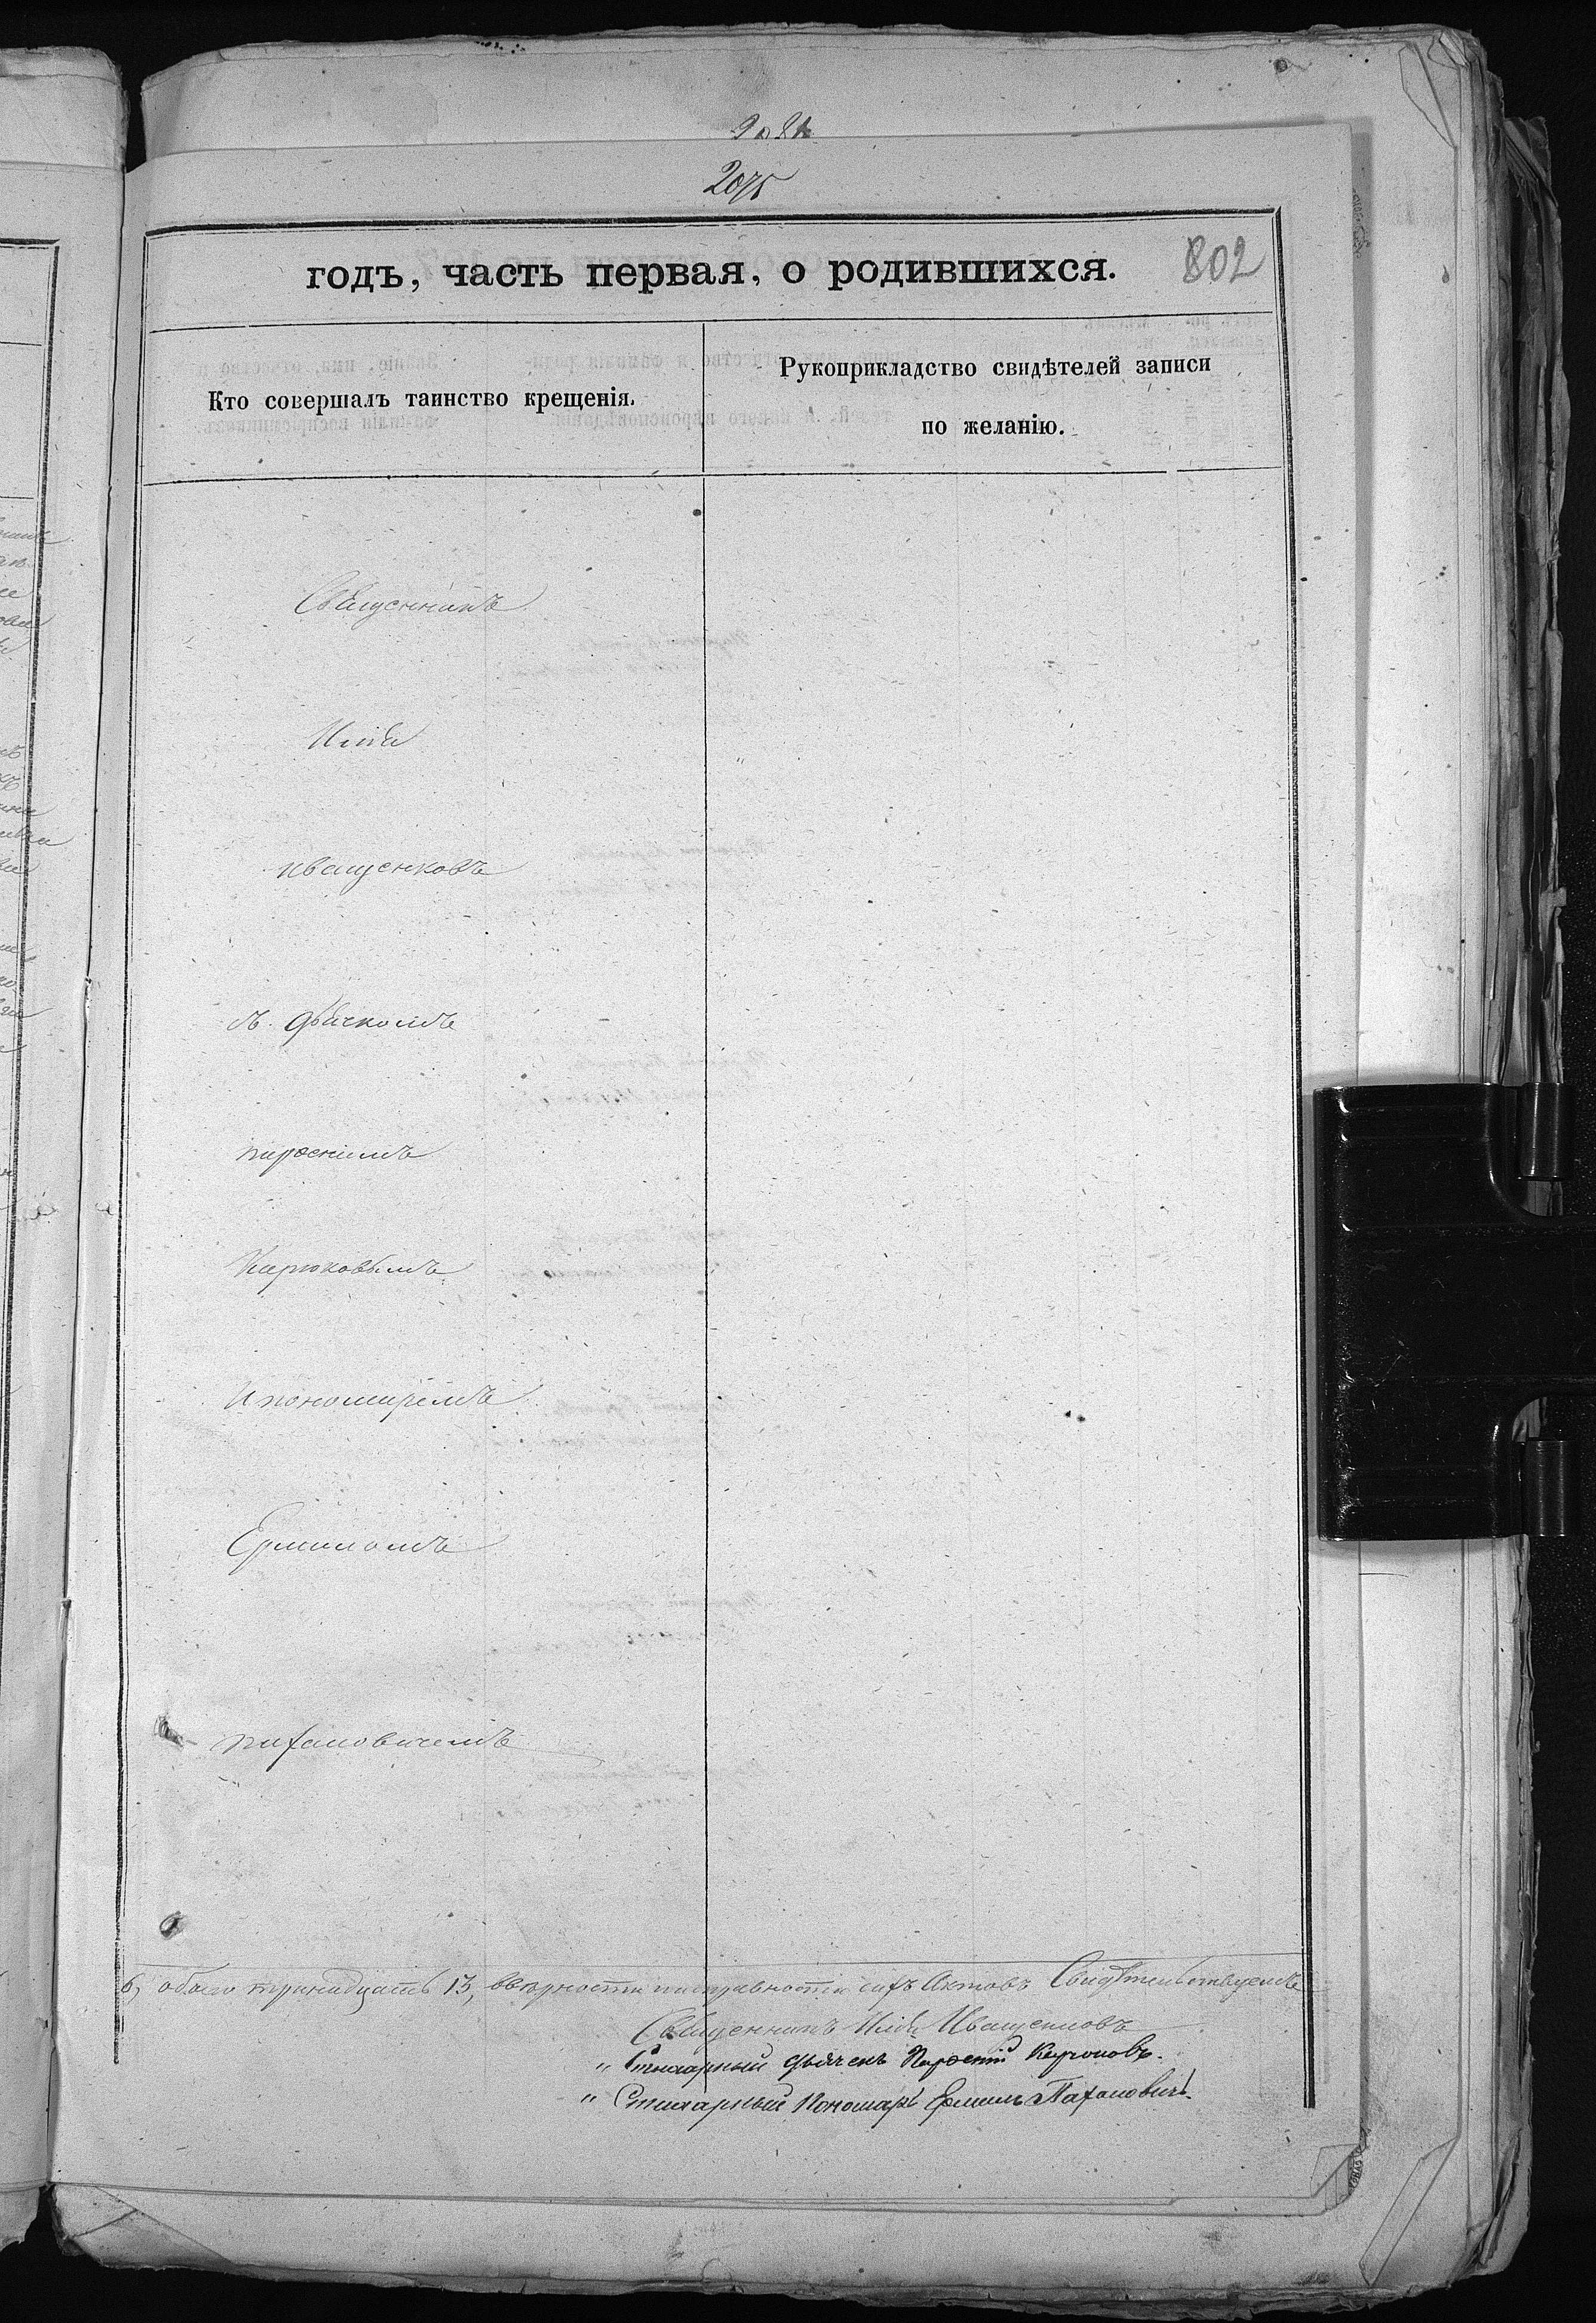 2075
годъ, часть первая, о родившихся.
802
Кто совершалъ таинство крещенія.
Рукоприкладство свидѣтелей записи
по желанію.
Священникъ
Илія
Иващенковъ
съ дьячкомъ
Кирюковымъ
и пономаремъ
Ермиломъ
Пахомовичемъ
6, обоего тринадцать 13, вѣрности сихъ Актовъ Свидѣтельствуемъ
Священникъ Илія Иващенковъ
„ Стихарный дьячекъ
„ Стихарный Пономарь Ермилъ Пахомовичъ